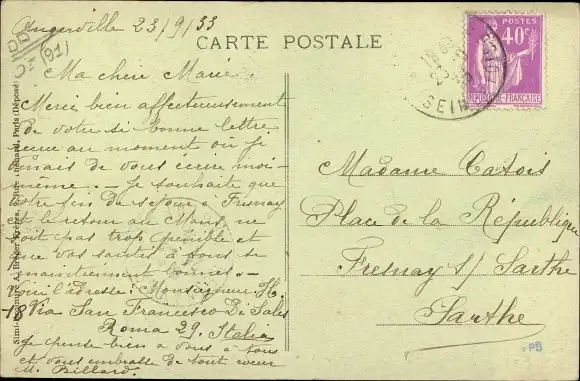 Angerville 23/9/33
(91)
CARTE POSTALE
POSTES
40c
REPUBLIQUE FRANÇAISE
Ma chère Marie,
Merci bien affectueusement
de votre si bonne lettre
reçue au moment où je
de vous écrire moi-
meme. - Je souhaite que
votre fin de séjour à Fresnay
et le retour au Mans ne
soit pas trop pénible et
que vos santés à tous se
maintiennent bonnes. -
Voici l'adresse: Monseigneur H.
18 Via San Francesco Di Sales
Roma 29. Italia
Je pense bien à vous à tous
et vous embrasse de tout coeur
M. Billard.
Madame Catois
Place de la République
Fresnay s/ Sarthe
Sarthe
PB